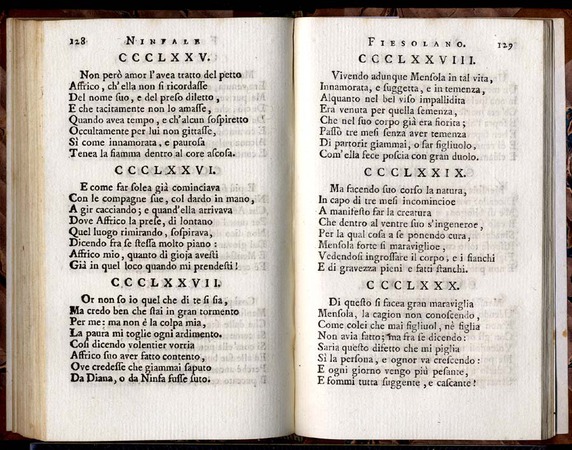 128 NINFALE
CCCLXXV.
Non però amor l'avea tratto del petto
Affrico, ch'ella non si ricordasse
Del nome suo, e del preso diletto,
E che tacitamente non lo amasse,
Quando avea tempo, e ch'alcun sospiretto
Occultamente per lui non gittasse,
Sì come innamorata, e paurosa
Tenea la fiamma dentro al core ascosa.
CCCLXXVI.
E come far solea già cominciava
Con le compagne sue, col dardo in mano,
A gir cacciando; e quand'ella arrivava
Dove Affrico la prese, di lontano
Quel luogo rimirando, sospirava,
Dicendo fra se stessa molto piano:
Affrico mio, quanto di gioja avesti
Già in quel loco quando mi prendesti!
CCCLXXVII.
Or non so io quel che di te si sia,
Ma credo ben che stai in gran tormento
Per me: ma non é la colpa mia,
La paura mi toglie ogni ardimento.
Così dicendo volentier vorria
Affrico suo aver fatto contento,
Ove credesse che giammai saputo
Da Diana, o da Ninfa fusse suto.
FIESOLANO. 129
CCCLXXVIII.
Vivendo adunque Mensola in tal vita,
Innamorata, e suggetta, e in temenza,
Alquanto nel bel viso impallidita
Era venuta per quella semenza,
Che nel suo corpo già era fiorita;
Passò tre mesi senza aver temenza
Di partorir giammai, o far figliuolo,
Com'ella fece poscia con gran duolo.
CCCLXXIX.
Ma facendo suo corso la natura,
In capo di tre mesi incomincioe
A manifesto far la creatura
Che dentro al ventre suo s'ingeneroe,
Per la qual cosa a se ponendo cura,
Mensola forte si maraviglioe,
Vedendosi ingrossare il corpo, e i fianchi
E di gravezza pieni e fatti stanchi.
CCCLXXX.
Di questo si facea gran maraviglia
Mensola, la cagion non conoscendo,
Come colei che mai figliuol, nè figlia
Non avia fatto; ma fra se dicendo:
Saria questo difetto che mi piglia
Sì la persona, e ognor va crescendo:
E ogni giorno vengo più pesante,
E sommi tutta suggente, e cascante!